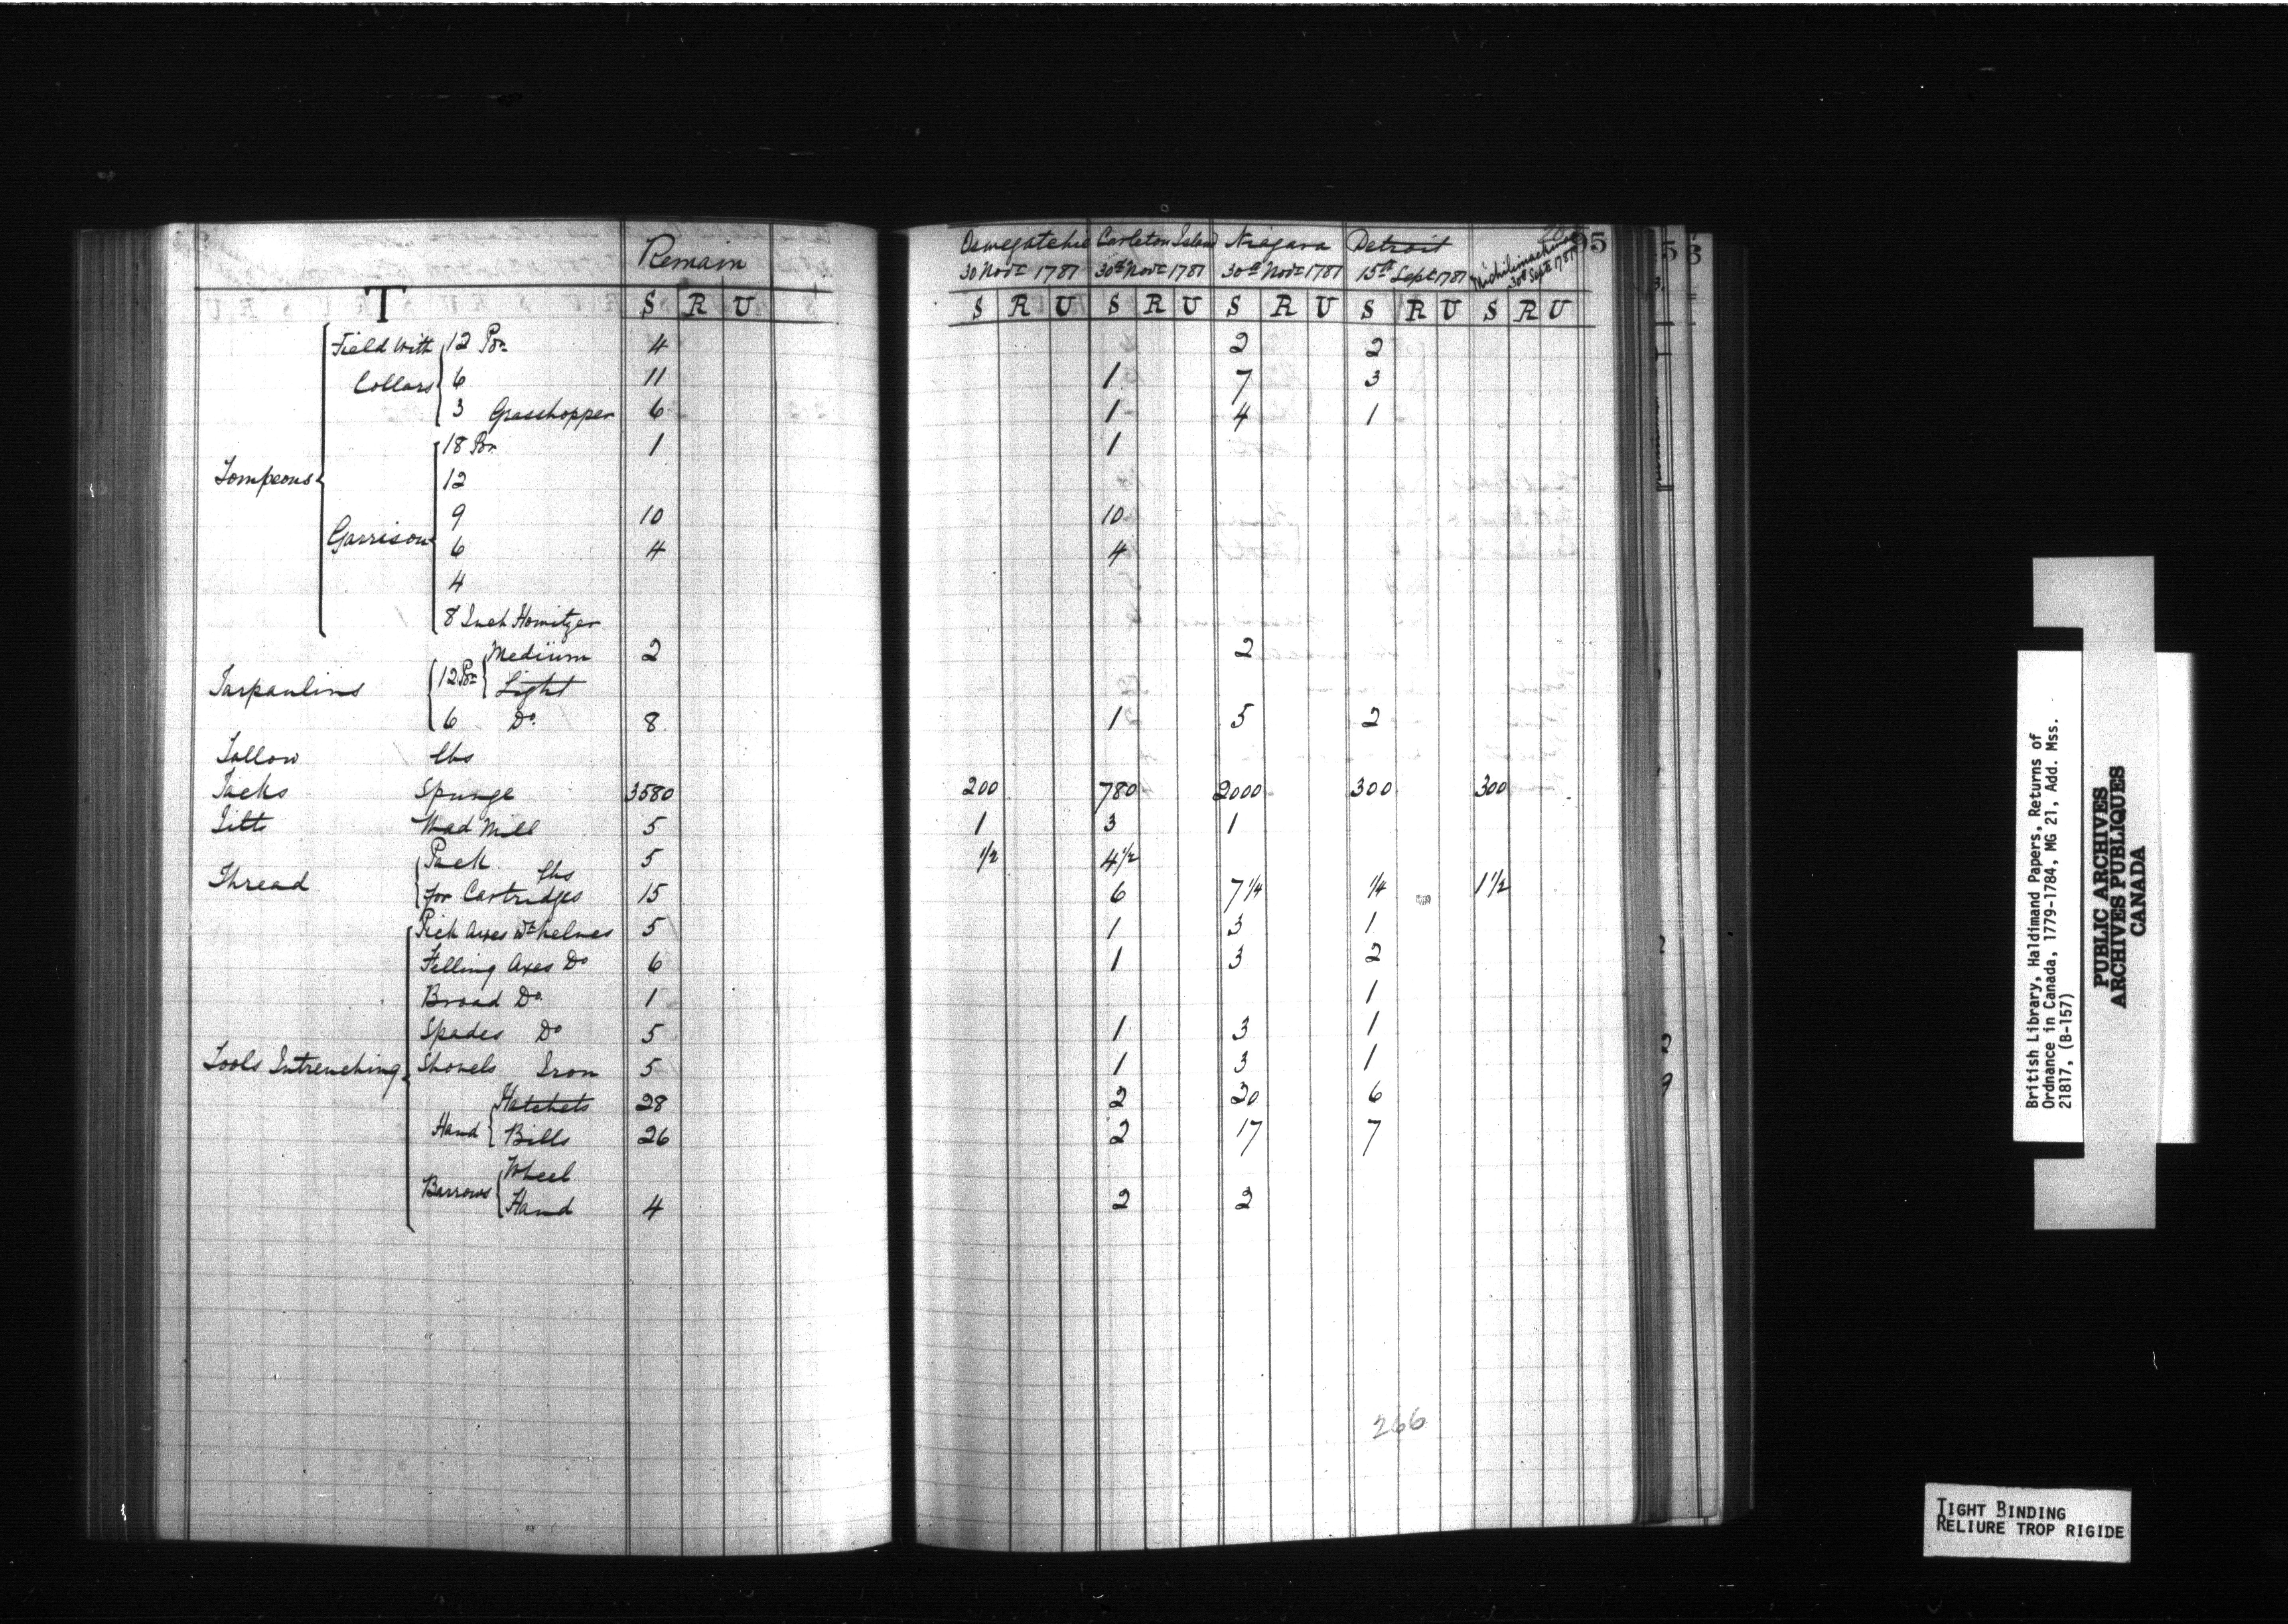 Remain
T S R U
Oswegatchie Carleton Island Niagara Detroit Michilimackinac 95
30 Novr 1781 30th Novr 1781 30th Novr 1781 15th Sept 1781 30th Sept 1781
S R U S R U S R U S R U S R U
Tompeons Field With Collars 12 Por 4 2 2
6 11 1 7 3
3 Grasshopper 6 1 4 1
Garrison 18 Por 1 1
12
9 10 10
6 4 4
4
8 Inch Howitzer
Tarpaulins 12 Por Medium 2 2
Light
6 Do. 8 1 5 2
Tallow lbs
Tacks Spunge 3580 200 780 2000 300 300
Tilts Wad Mill 5 1 3 1
Thread Pack lbs 5 1/2 4 1/2
for Cartridges 15 6 7 1/4 1/4 1 1/2
Tools Intrenching Pick Axes Wt helves 5 1 3 1
Felling Axes Do 6 1 3 2
Broad Do. 1 1
Spades Do 5 1 3 1
Shovels Iron 5 1 3 1
Hand Hatchets 28 2 20 6
Bills 26 2 17 7
Barrows Wheel
Hand 4 2 2
266
British Library, Haldimand Papers, Returns of
Ordnance in Canada, 1779-1784, MG 21, Add. Mss.
21817, (B-157)
PUBLIC ARCHIVES
ARCHIVES PUBLIQUES
CANADA
TIGHT BINDING
RELIURE TROP RIGIDE